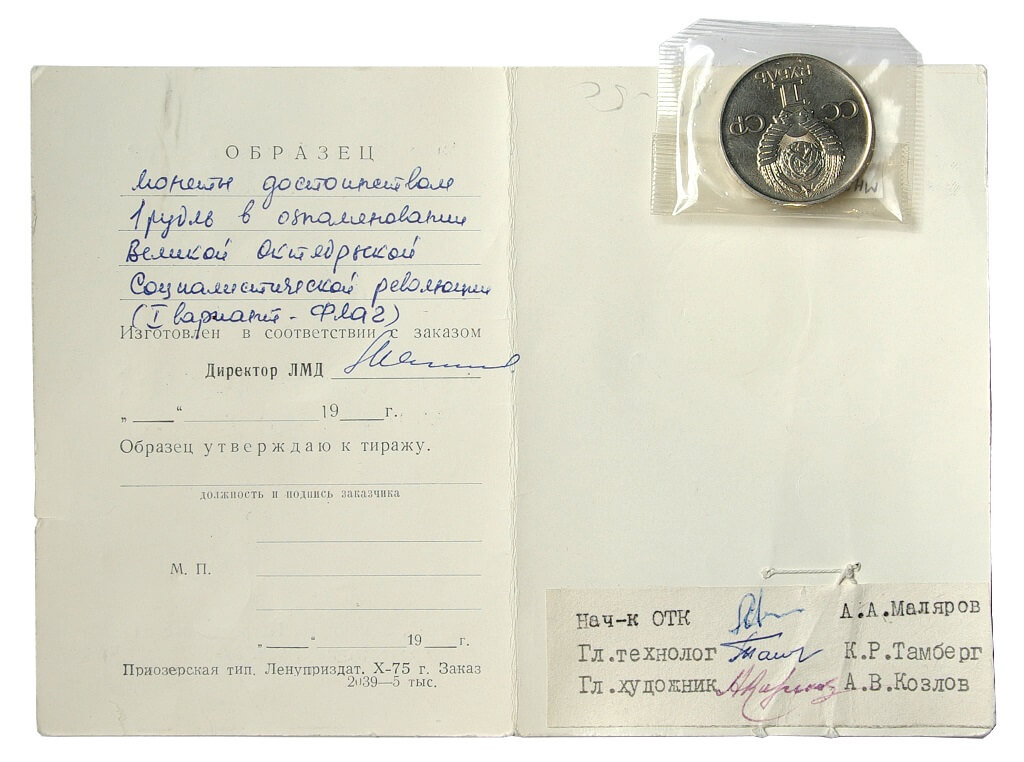 ОБРАЗЕЦ
монеты достоинством
1 рубль в ознаменовании
Великой Октябрьской
Социалистической революции
(I вариант - Флаг)
Изготовлен в соответствии с заказом
Директор ЛМД
„ “ 19 г.
Образец утверждаю к тиражу.
должность и подпись заказчика
М. П.
„ “ 19 г.
Приозерская тип. Ленуприздат. X-75 г. Заказ
2039—5 тыс.
РУБЛЬ
1
СС СР
Нач-к ОТК А.А.Маляров
Гл.технолог К.Р.Тамберг
Гл.художник А.В.Козлов